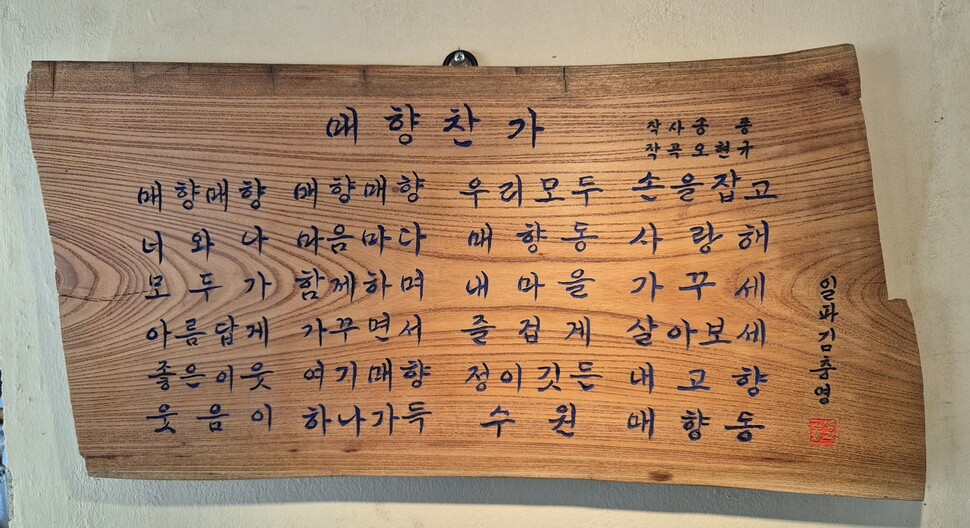 매향찬가
작사 송 풍
작곡 오현규
매향매향 매향매향 우리모두 손을잡고
너와나 마음마다 매향동 사랑해
모두가 함께하며 내마을 가꾸세
아름답게 가꾸면서 즐겁게 살아보세
좋은이웃 여기매향 정이깃든 내고향
웃음이 하나가득 수원 매향동
일파 김충영